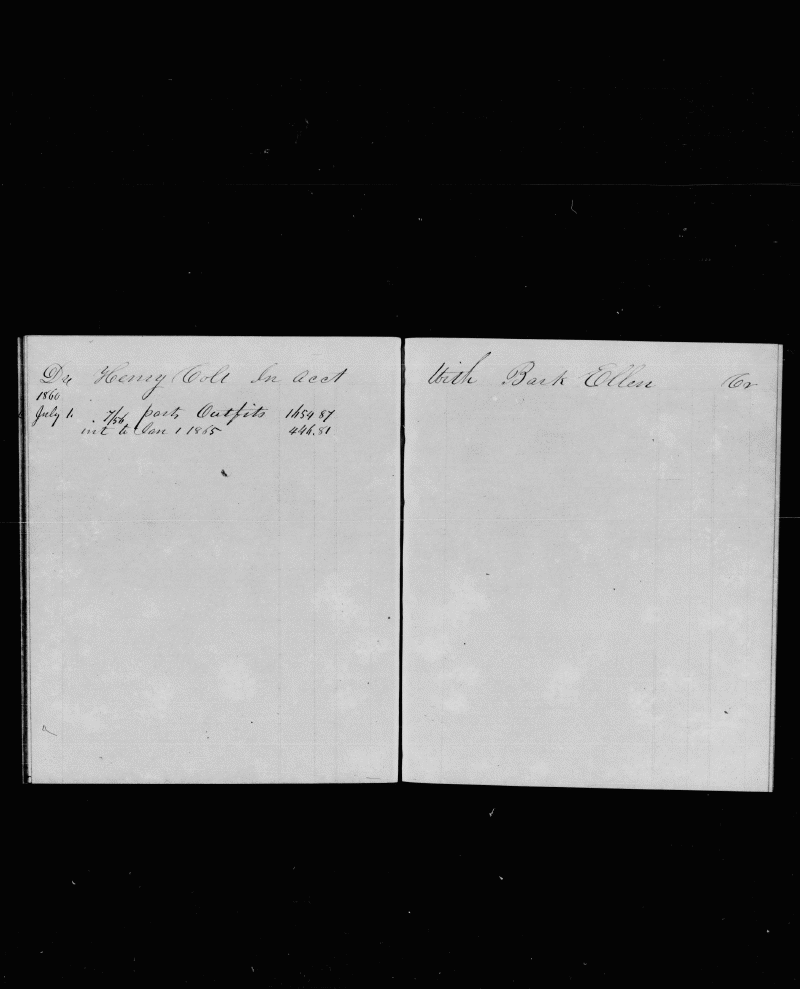 Dr Henry Cole In acct
1860
July 1. 7/56 parts Outfits 1654 87
int to Jan 1 1865 446.81
With Bark Ellen Cr